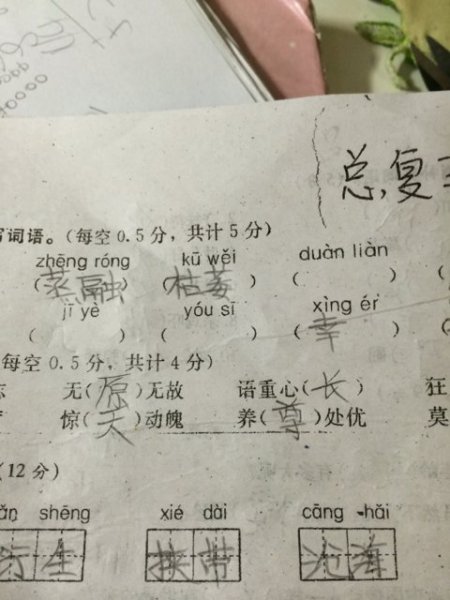 总复
写词语。(每空 0.5 分，共计 5 分)
zhēng róng kū wěi duàn liàn
(蒸融) (枯萎) ( ) (
jì yè yóu sī xìng ér
( ) ( ) (幸 ) (
(每空 0.5 分，共计 4 分)
无(原)无故 语重心(长) 狂
惊(天)动魄 养(尊)处优 莫
(12 分)
shēng xié dài cāng hǎi
衍生 挟带 沧海